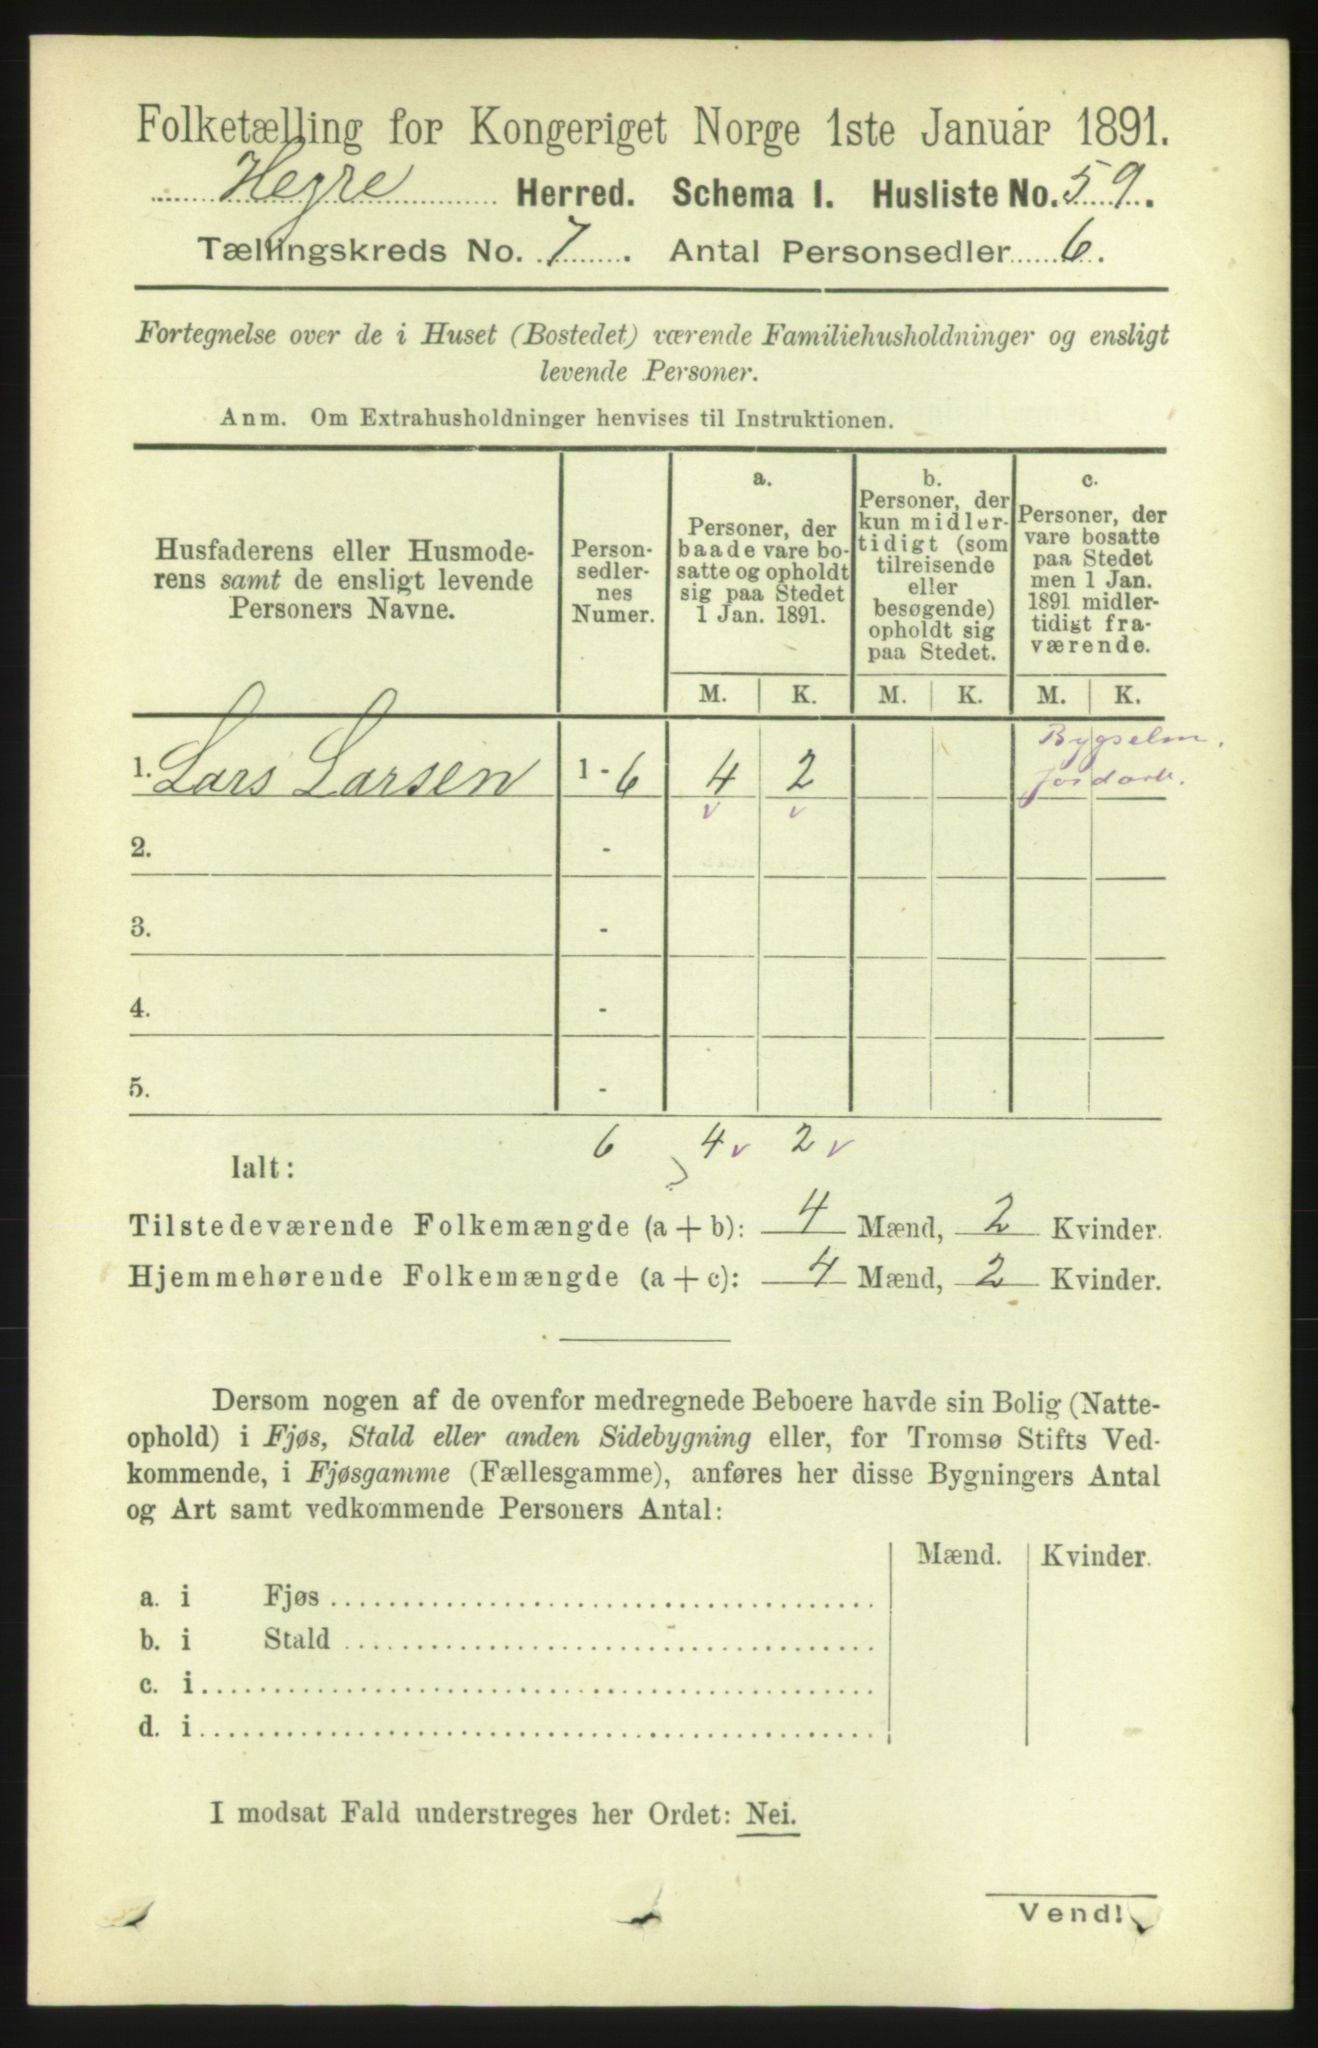 Folketælling for Kongeriget Norge 1ste Januar 1891.
Hegre Herred. Schema I. Husliste No. 59.
Tællingskreds No. 7. Antal Personsedler 6.
Fortegnelse over de i Huset (Bostedet) værende Familiehusholdninger og ensligt
levende Personer.
Anm. Om Extrahusholdninger henvises til Instruktionen.
Husfaderens eller Husmode-
rens samt de ensligt levende
Personers Navne.
Person-
sedler-
nes
Numer.
a.
Personer, der
baade vare bo-
satte og opholdt
sig paa Stedet
1 Jan. 1891.
b.
Personer, der
kun midler-
tidigt (som
tilreisende
eller
besøgende)
opholdt sig
paa Stedet.
c.
Personer, der
vare bosatte
paa Stedet
men 1 Jan.
1891 midler-
tidigt fra-
værende.
M. K. M. K. M. K.
Bygselm.
1. Lars Larsen 1 - 6 4 2 Jordarb.
2. -
3. -
4. -
5. -
6 4 2
Ialt:
Tilstedeværende Folkemængde (a + b): 4 Mænd, 2 Kvinder.
Hjemmehørende Folkemængde (a + c): 4 Mænd, 2 Kvinder.
Dersom nogen af de ovenfor medregnede Beboere havde sin Bolig (Natte-
ophold) i Fjøs, Stald eller anden Sidebygning eller, for Tromsø Stifts Ved-
kommende, i Fjøsgamme (Fællesgamme), anføres her disse Bygningers Antal
og Art samt vedkommende Personers Antal:
Mænd. Kvinder.
a. i Fjøs
b. i Stald
c. i
d. i
I modsat Fald understreges her Ordet: Nei.
Vend!